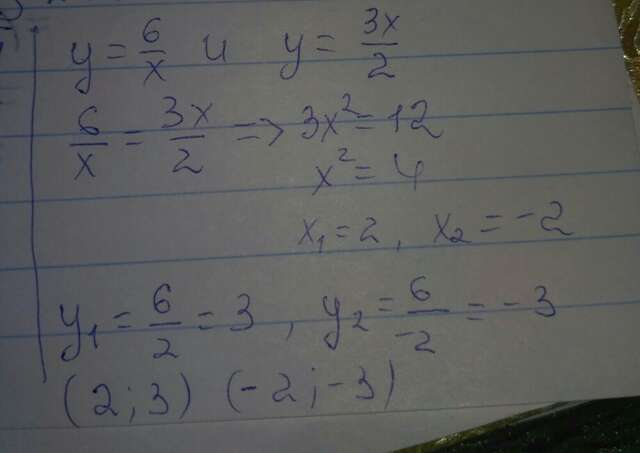 y = 6/x и y = 3x/2
6/x = 3x/2 => 3x² = 12
x² = 4
x₁ = 2, x₂ = -2
y₁ = 6/2 = 3, y₂ = 6/-2 = -3
(2; 3) (-2; -3)